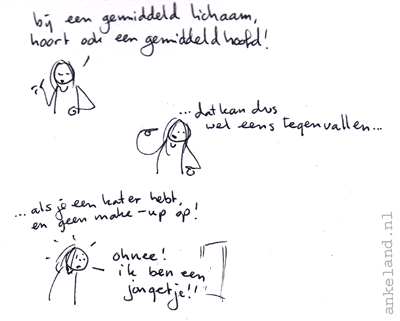 bij een gemiddeld lichaam,
hoort ook een gemiddeld hoofd!
...dat kan dus
wel eens tegenvallen...
...als je een kater hebt,
en geen make-up op!
ohnee!
ik ben een
jongetje!!
ankeland.nl